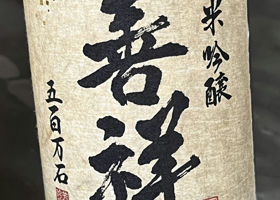 米吟醸
善祥
五百万石